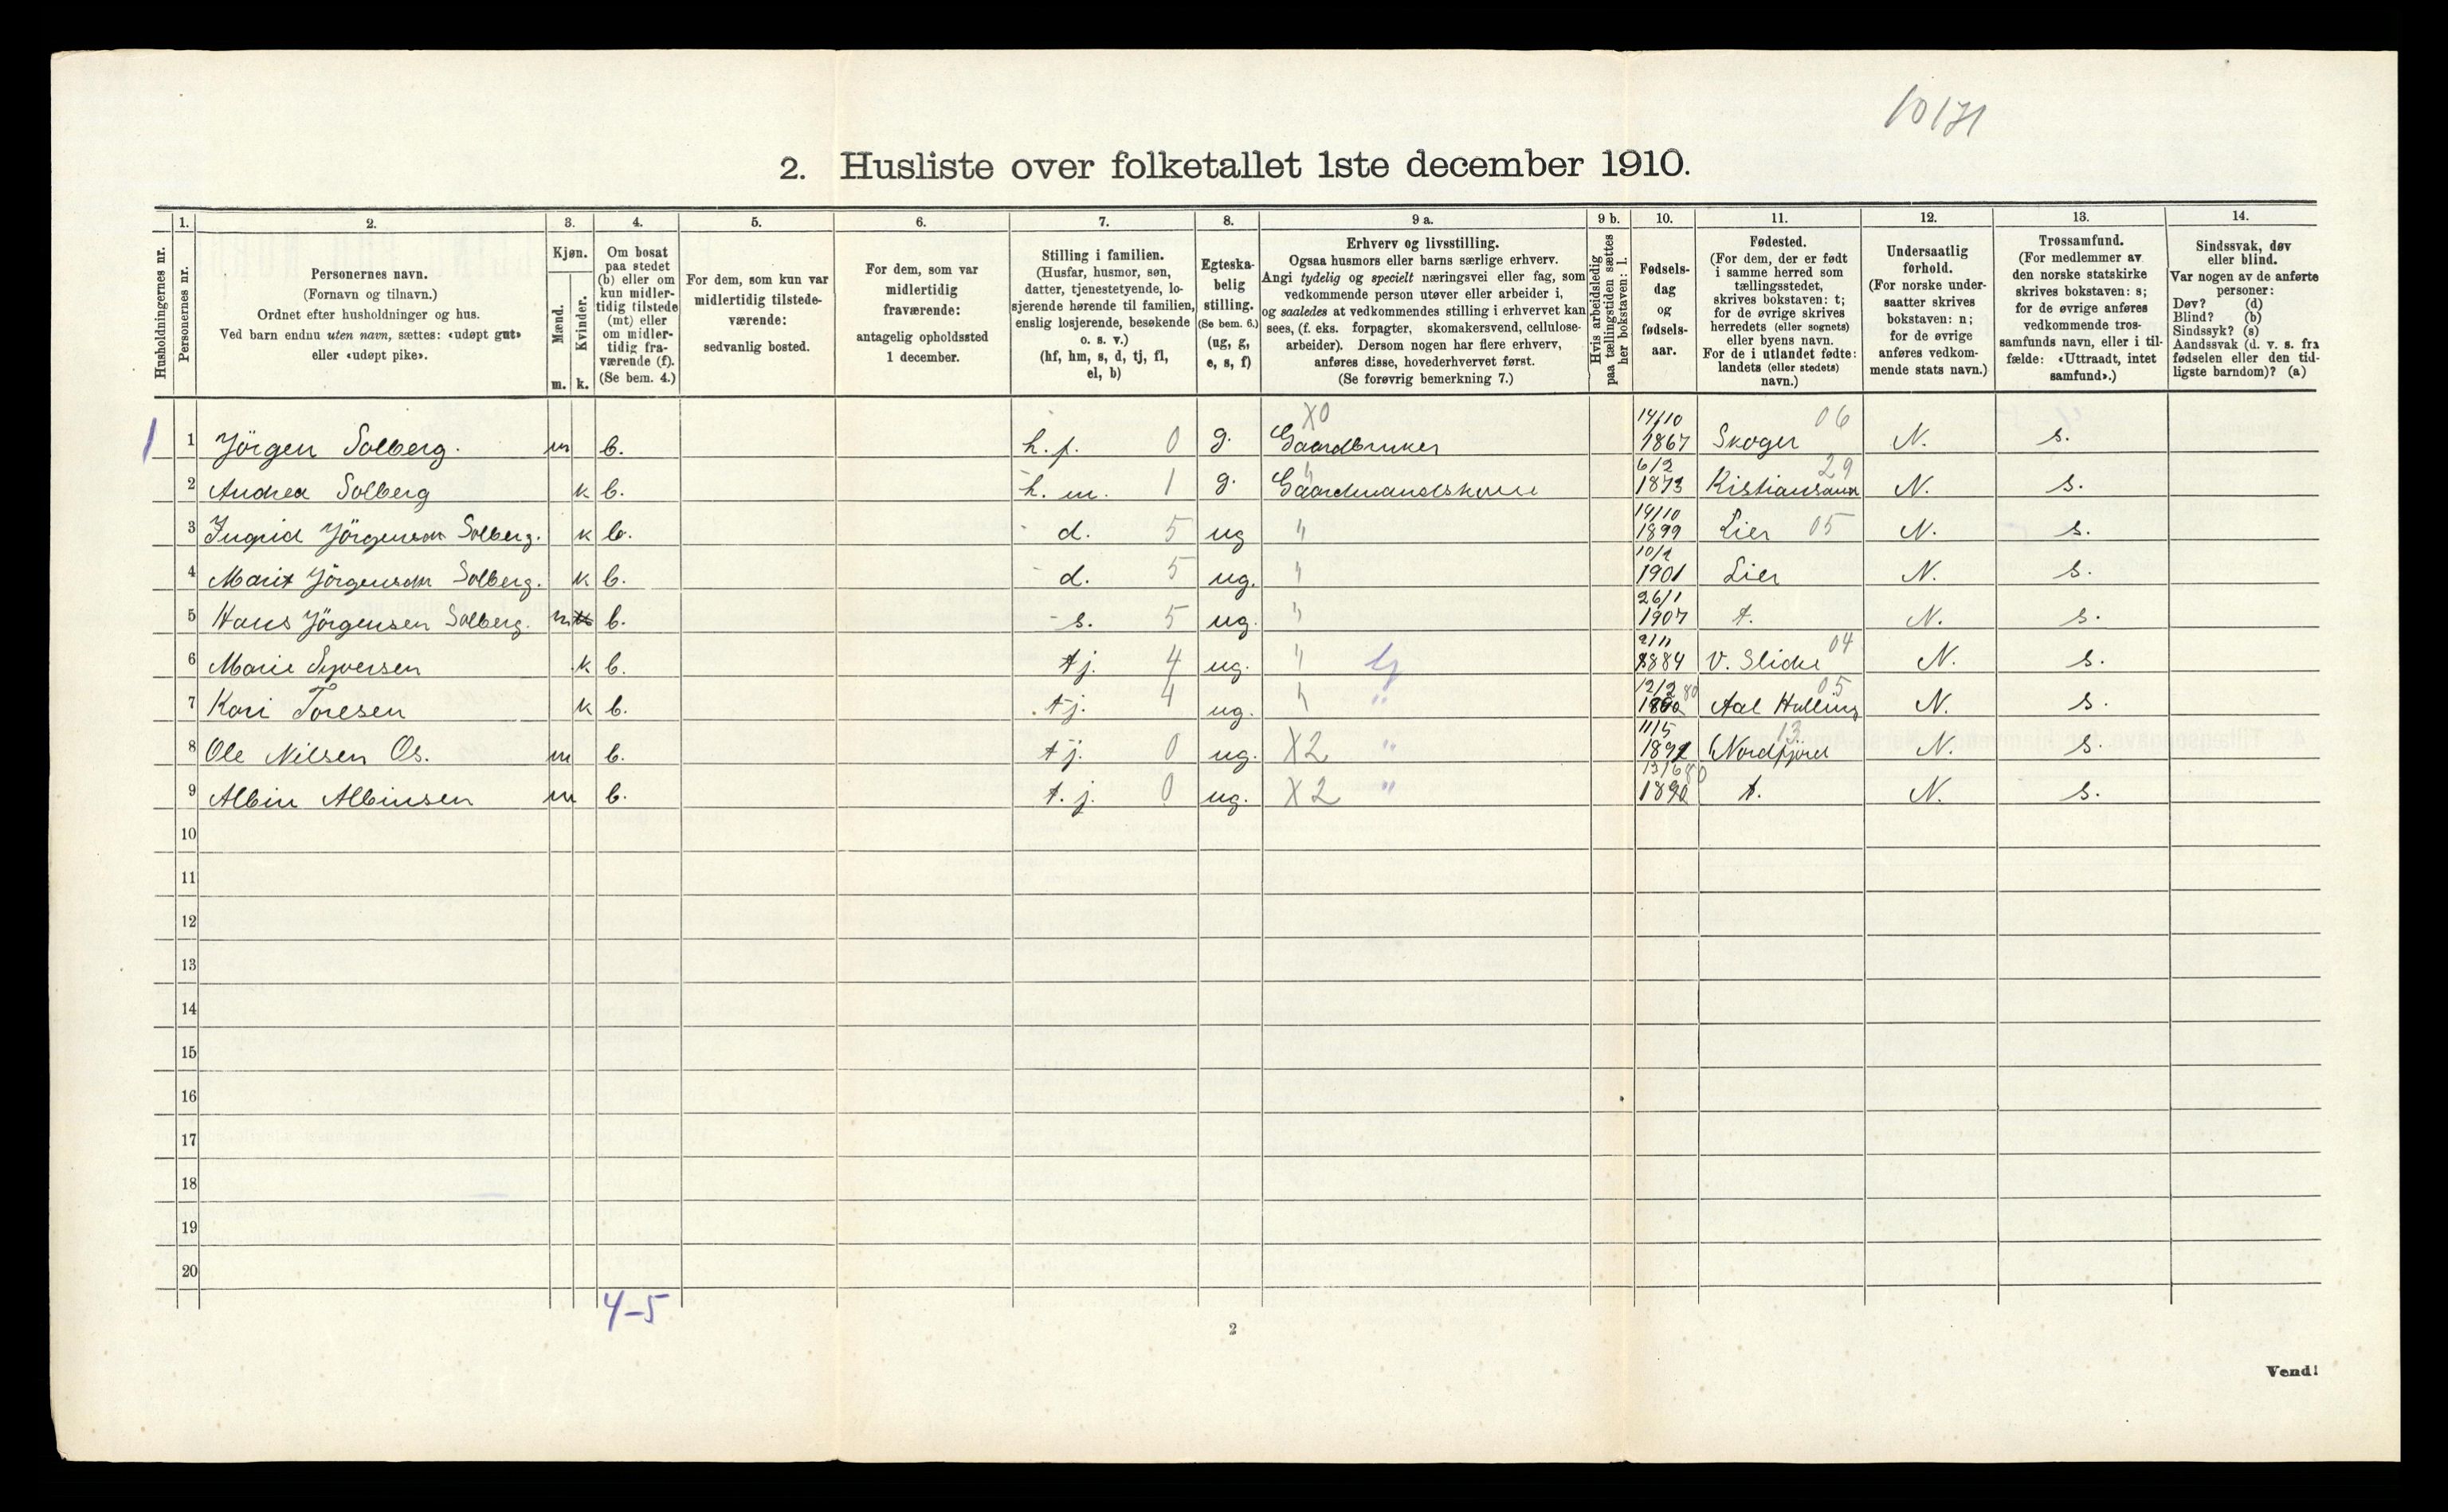 10171
2. Husliste over folketallet 1ste december 1910.
Husholdningernes nr.
1.
Personernes nr.
2.
Personernes navn.
(Fornavn og tilnavn.)
Ordnet efter husholdninger og hus.
Ved barn endnu uten navn, sættes: «udøpt gut»
eller «udøpt pike».
3.
Kjøn.
Mænd.
Kvinder.
m. k.
4.
Om bosat
paa stedet
(b) eller om
kun midler-
tidig tilstede
(mt) eller
om midler-
tidig fra-
værende (f).
(Se bem. 4.)
5.
For dem, som kun var
midlertidig tilstede-
værende:
sedvanlig bosted.
6.
For dem, som var
midlertidig
fraværende:
antagelig opholdssted
1 december.
7.
Stilling i familien.
(Husfar, husmor, søn,
datter, tjenestetyende, lo-
sjerende hørende til familien,
enslig losjerende, besøkende
o. s. v.)
(hf, hm, s, d, tj, fl,
el, b)
8.
Egteska-
belig
stilling.
(Se bem. 6.)
(ug, g,
e, s, f)
9 a.
Erhverv og livsstilling.
Ogsaa husmors eller barns særlige erhverv.
Angi tydelig og specielt næringsvei eller fag, som
vedkommende person utøver eller arbeider i,
og saaledes at vedkommendes stilling i erhvervet kan
sees, (f. eks. forpagter, skomakersvend, cellulose-
arbeider). Dersom nogen har flere erhverv,
anføres disse, hovederhvervet først.
(Se forøvrig bemerkning 7.)
9 b.
Hvis arbeidsledig
paa tællingstiden sættes
her bokstaven: l.
10.
Fødsels-
dag
og
fødsels-
aar.
11.
Fødested.
(For dem, der er født
i samme herred som
tællingsstedet,
skrives bokstaven: t;
for de øvrige skrives
herredets (eller sognets)
eller byens navn.
For de i utlandet fødte:
landets (eller stedets)
navn.)
12.
Undersaatlig
forhold.
(For norske under-
saatter skrives
bokstaven: n;
for de øvrige
anføres vedkom-
mende stats navn.)
13.
Trossamfund.
(For medlemmer av
den norske statskirke
skrives bokstaven: s;
for de øvrige anføres
vedkommende tros-
samfunds navn, eller i til-
fælde: «Uttraadt, intet
samfund».)
14.
Sindssvak, døv
eller blind.
Var nogen av de anførte
personer:
Døv? (d)
Blind? (b)
Sindssyk? (s)
Aandssvak (d. v. s. fra
fødselen eller den tid-
ligste barndom)? (a)
X0 14/10 06
1 1 Jörgen Solberg. m b. h. f. 0 g. Gaardbruker 1867 Skoger N. s.
" 6/2 29
2 Andrea Solberg k b. h. m. 1 g. Gaardmandskone 1873 Kistiansand N. s.
14/10
3 Ingrid Jörgensen Solberg. k b. d. 5 ug " 1899 Lier 05 N. s.
10/1
4 Marit Jörgensen Solberg. k b. d. 5 ug. " 1901 Lier N. s.
26/1
5 Hans Jörgensen Solberg. m b. s. 5 ug. " 1907 t. N. s.
2/11 04
6 Marie Syversen k b. tj. 4 ug. " 1884 V. Slidre N. s.
12/2 80 05
7 Kari Toresen k b. tj. 4 ug. " " Aal Halling N. s.
11/5 13
8 Ole Nilsen Os. m b. tj. 0 ug. X2 " Nordfjord N. s.
13/6 80
9 Albin Albinsen m b. t. j. 0 ug. X2 " 1890 t. N. s.
10
11
12
13
14
15
16
17
18
19
20
4-5
2
Vend!